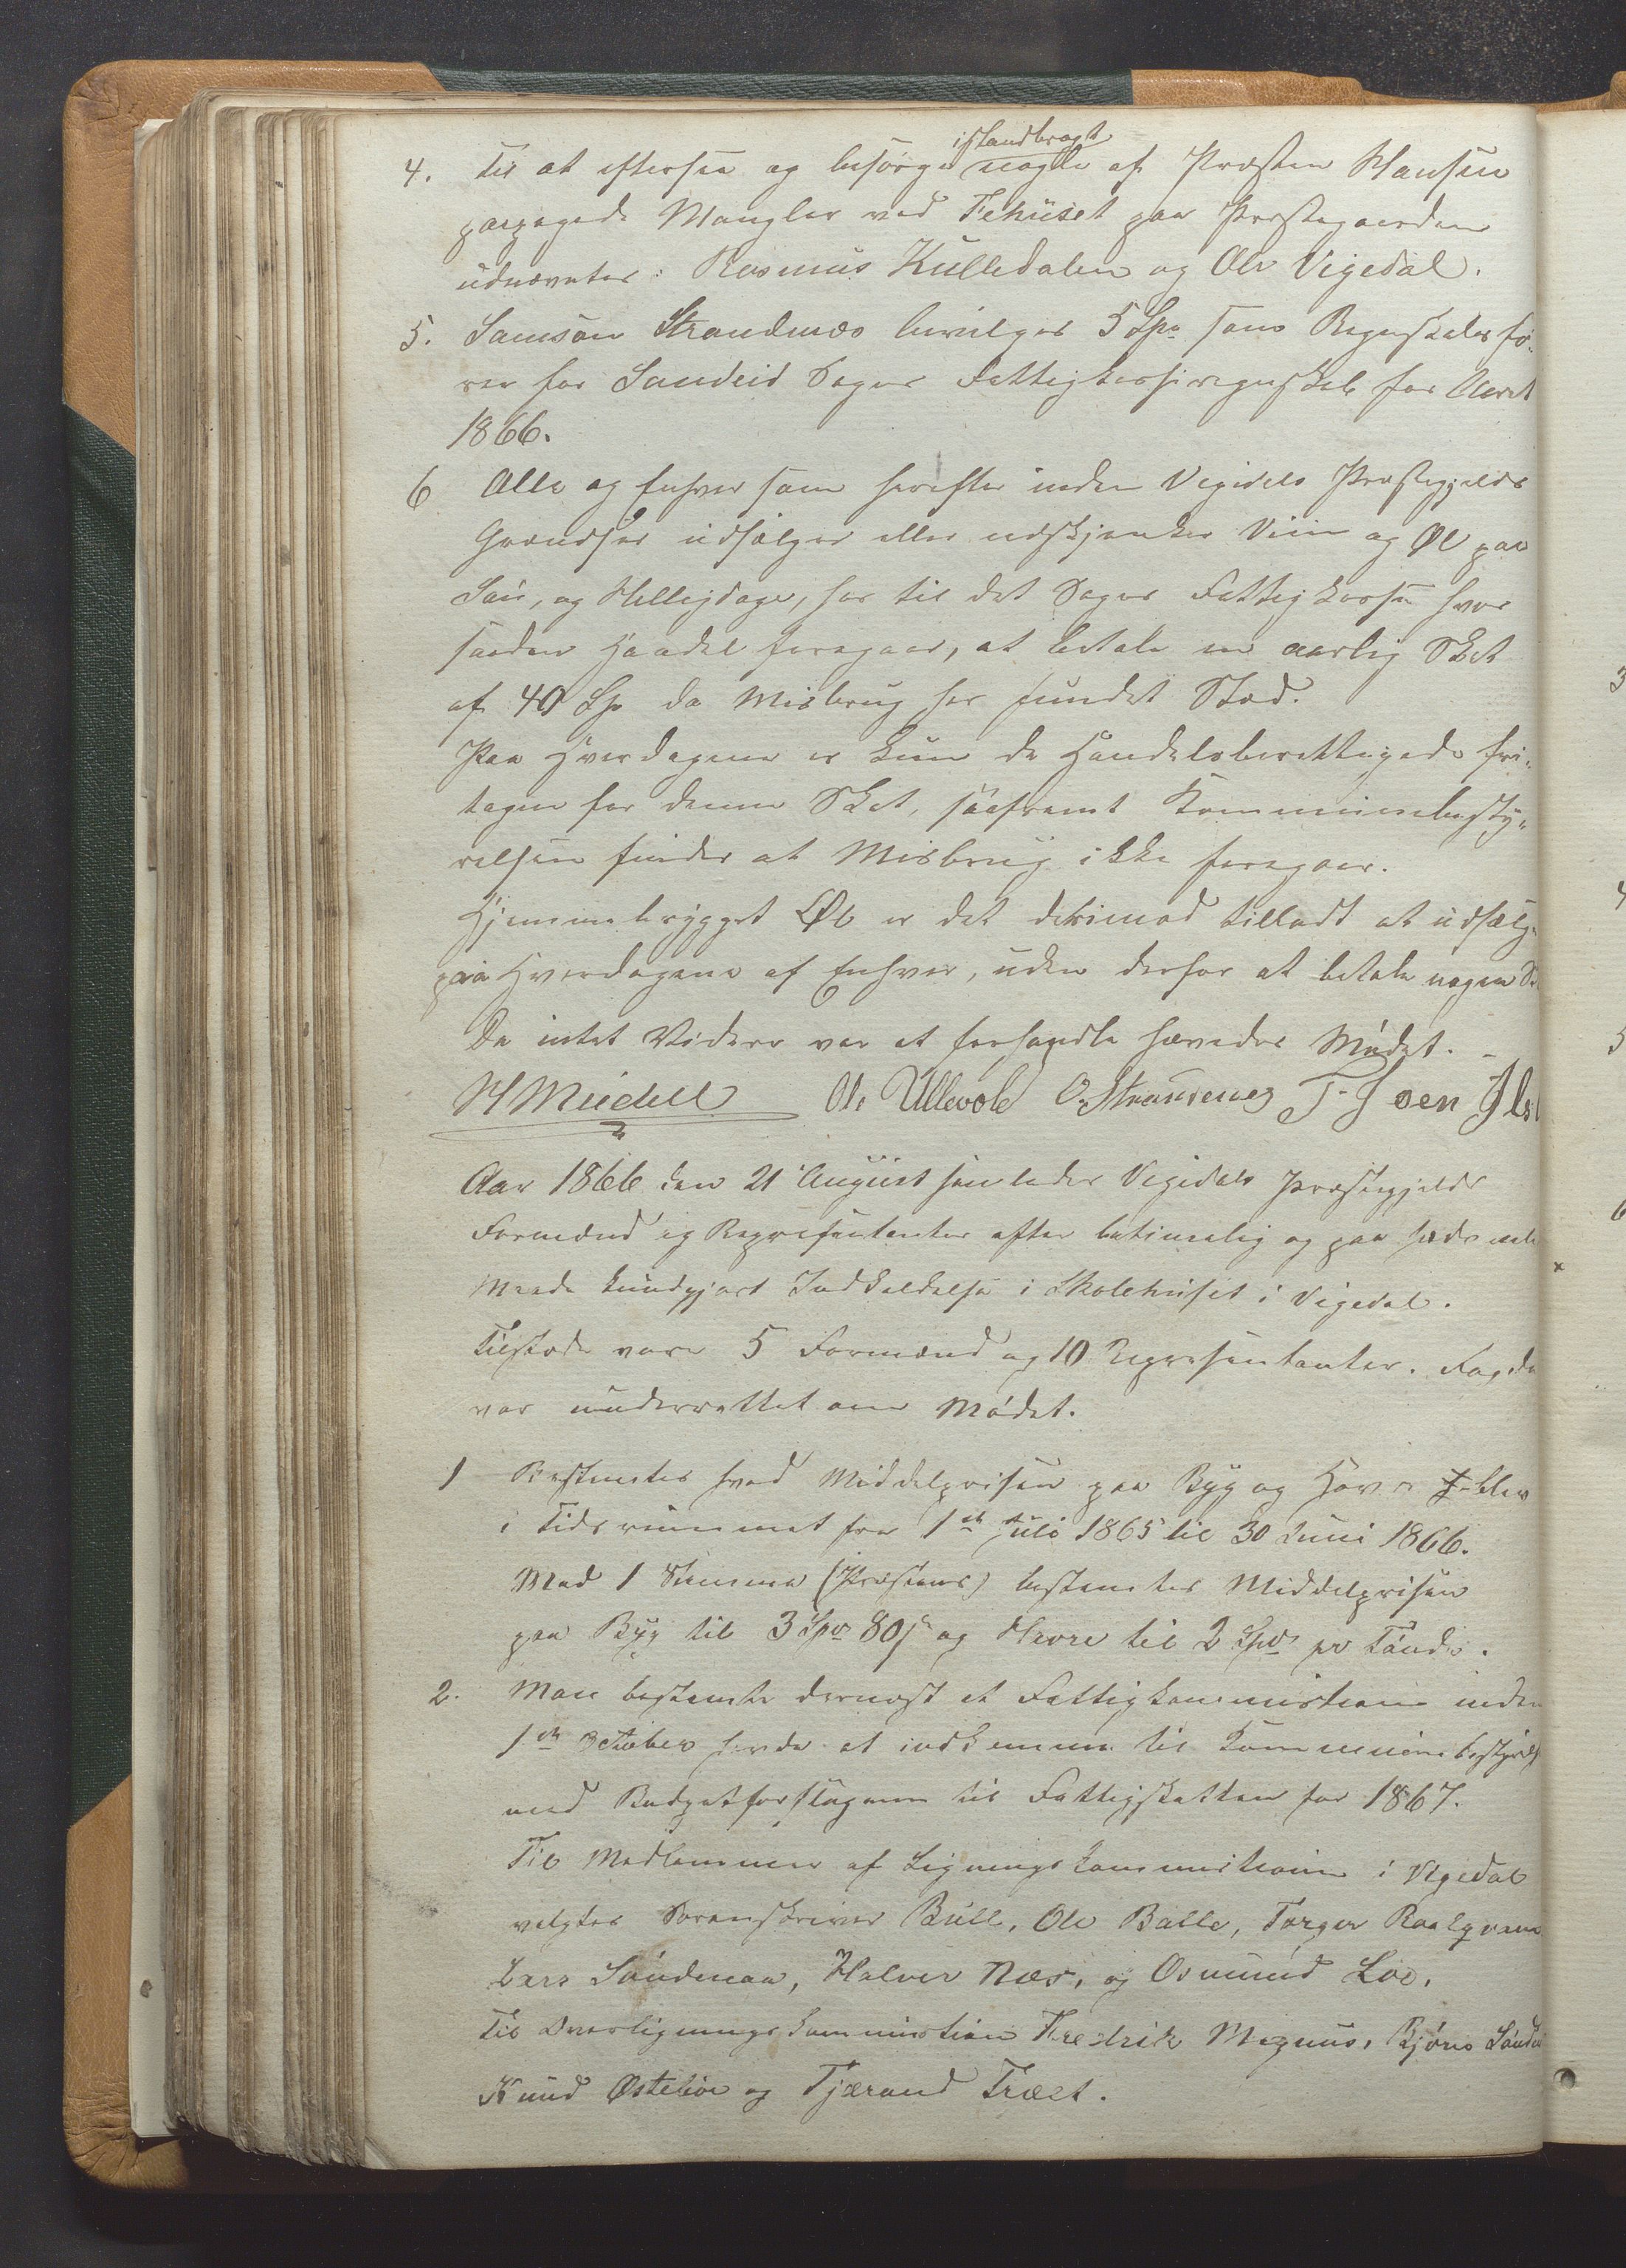 istandbragt
4. Til at eftersee og besørge nogle af Præsten Hansen
paapegede Mangler ved Fehuset paa Præstegaarden
udnævntes: Rasmus Kulledalen og Ole Vigedal.
5. Samson Strandnæs bevilges 5 Spd som Regnskabsfø-
rer for Sandeid Sogns Fattigkasseregnskab for Aaret
1866.
6 Alle og Enhver som herefter inden Vigedals Præstegjelds
Grændser udsælger eller udskjenker Viin og Øl paa
Søn, og Helligdage, har til det Sogns Fattigkasse hvor
saadan Handel foregaar, at betale en aarlig Skat
af 40 Sp da Misbrug har fundet Sted.
Paa Hverdagene er kun de Handelsberettigede fri-
tagen for denne Skat, saafremt Kommunebesty-
relsen finder at Misbrug ikke foregaar.
Hjemmebrygget Øl er det derimod tilladt at udsælge
paa Hverdagene af Enhver, uden derfor at betale nogen
Da intet Videre var at forhandle hævedes Mødet.
H Meidell Ole Ullevole O. Strandenes T. I sen
Aar 1866 den 21 August samledes Vigedals Præstegjelds
Formænd og Repræsentanter efter betimelig og paa sædvanlig
Maade kundgjort Indkaldelse i Skolehuset i Vigedal.
Tilstede vare 5 Formænd og 10 Repræsentanter. Fogden
var underrettet om Mødet.
1 Bestemtes hvad Middelprisen paa Byg og Havre blev
i Tidsrummet fra 1ste Juli 1865 til 30 Juni 1866.
Med 1 Stemme (Præstens) bestemtes Middelprisen
paa Byg til 3 Spd 80 s og Havre til 2 Spd pr Tønde.
2. Man bestemte dernæst at Fattigkommissionen inden
1ste October havde at indkomme til Kommunebestyrelsen
med Budgetforslagene til Fattigskatten for 1867.
Til Medlemmer af Ligningskommissionen i Vigedal
valgtes Sorenskriver Bull, Ole Balle, Torger
Lars Søndenaa, Halvor Næs, og Osmund Løe.
Til Overligningskommission Fredrik Magnus, Bjørn
Knud Østebøe og Tjærand Træet.